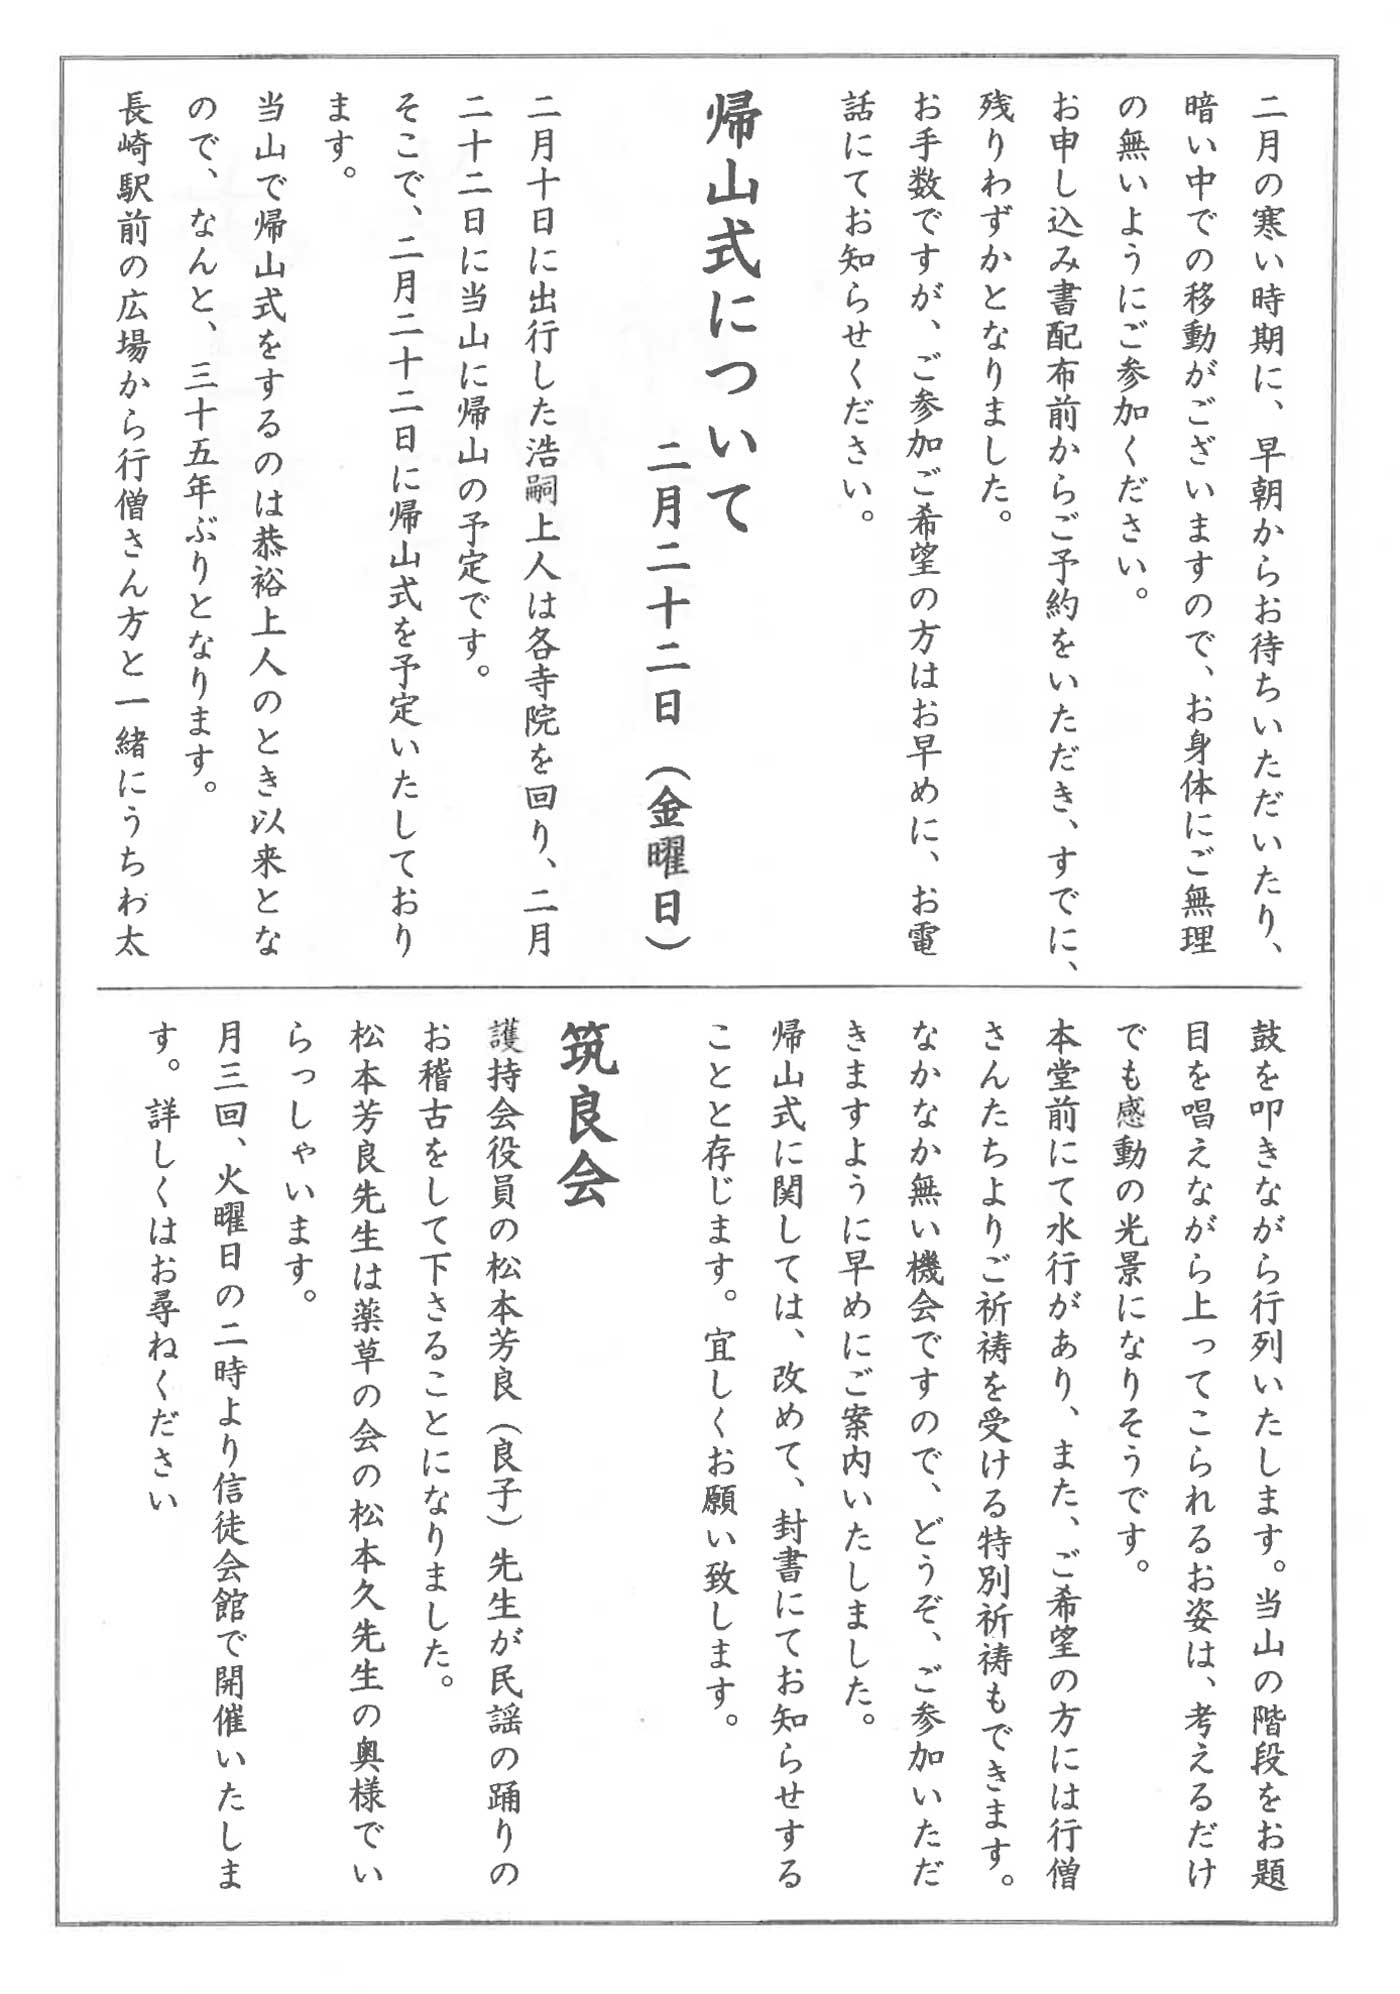 二月の寒い時期に、早朝からお待ちいただいたり、
暗い中での移動がございますので、お身体にご無理
の無いようにご参加ください。
お申し込み書配布前からご予約をいただき、すでに、
残りわずかとなりました。
お手数ですが、ご参加ご希望の方はお早めに、お電
話にてお知らせください。
帰山式について
二月二十二日（金曜日）
二月十日に出行した浩嗣上人は各寺院を回り、二月
二十二日に当山に帰山の予定です。
そこで、二月二十二日に帰山式を予定いたしており
ます。
当山で帰山式をするのは恭裕上人のとき以来とな
ので、なんと、三十五年ぶりとなります。
長崎駅前の広場から行僧さん方と一緒にうちわ太
鼓を叩きながら行列いたします。当山の階段をお題
目を唱えながら上ってこられるお姿は、考えるだけ
でも感動の光景になりそうです。
本堂前にて水行があり、また、ご希望の方には行僧
さんたちよりご祈祷を受ける特別祈祷もできます。
なかなか無い機会ですので、どうぞ、ご参加いただ
きますように早めにご案内いたしました。
帰山式に関しては、改めて、封書にてお知らせする
ことと存じます。宜しくお願い致します。
筑良会
護持会役員の松本芳良（良子）先生が民謡の踊りの
お稽古をして下さることになりました。
松本芳良先生は薬草の会の松本久先生の奥様でい
らっしゃいます。
月三回、火曜日の二時より信徒会館で開催いたしま
す。詳しくはお尋ねください